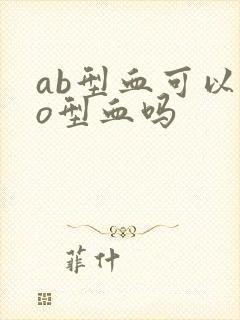 ab型血可以
o型血吗
菲什